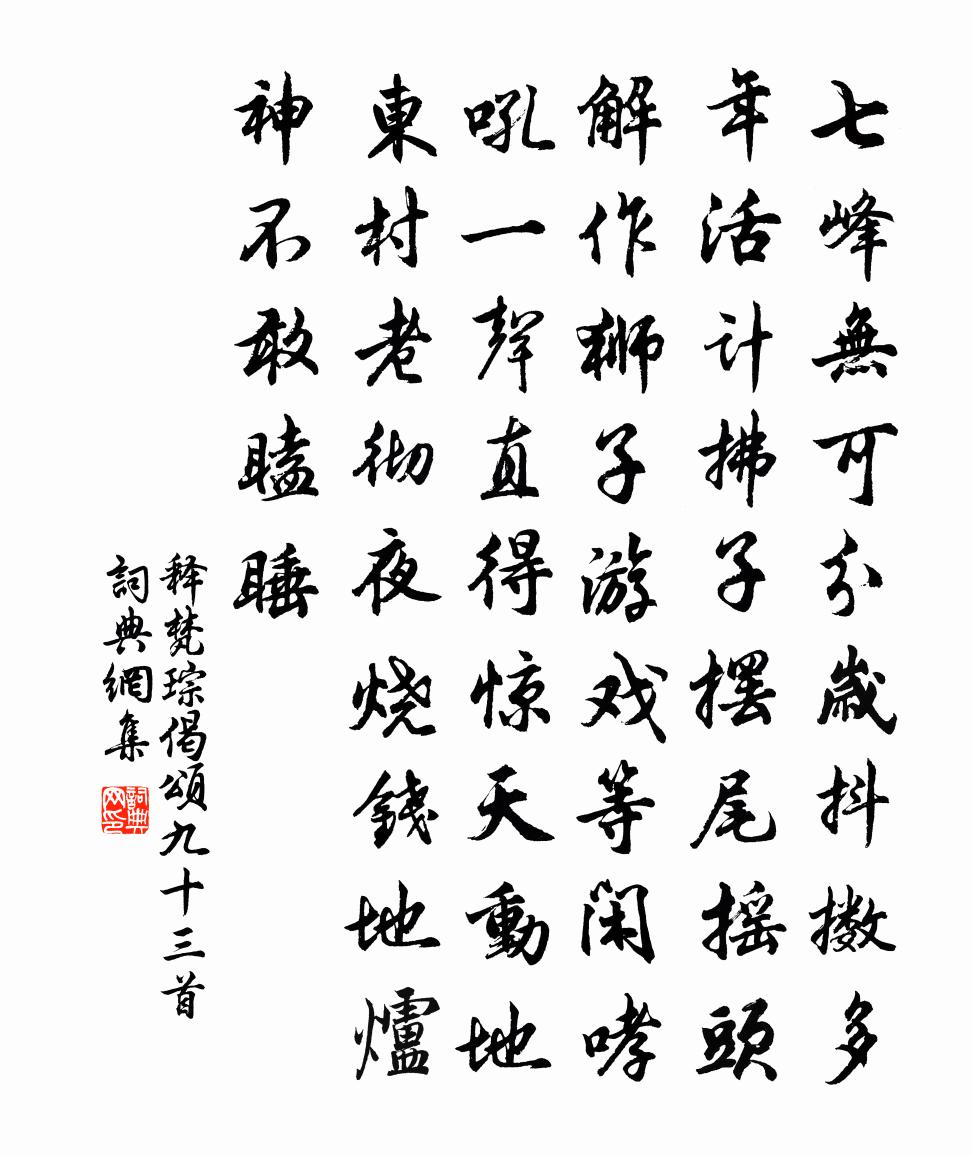 七峰無可分歲抖擻多
年活計拂子擺尾摇頭
解作狮子游戏等闲哮
吼一聲直得惊天動地
東村老彻夜烧錢地爐
神不敢瞌睡
释梵琮偈頌九十三首
詞典網集
詞典网印